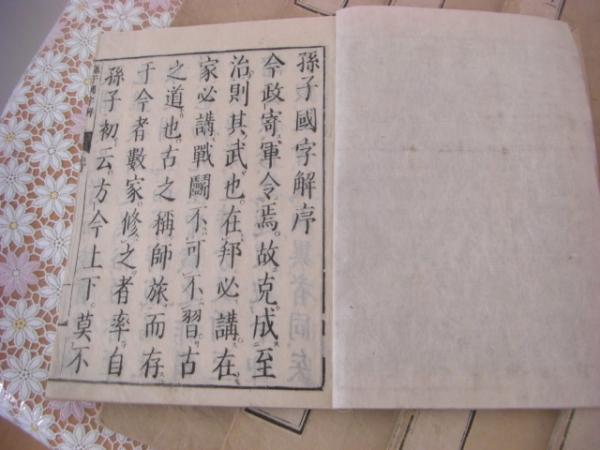 孫子國字解序
今政寄軍令焉。故克成至
治則其武也。在邦必講。在
家必講。戰鬪不可不習。古
之道也。古之稱師旅而存
于今者數家。修之者率自
孫子初。云。方今上下。莫不
孫子國字解